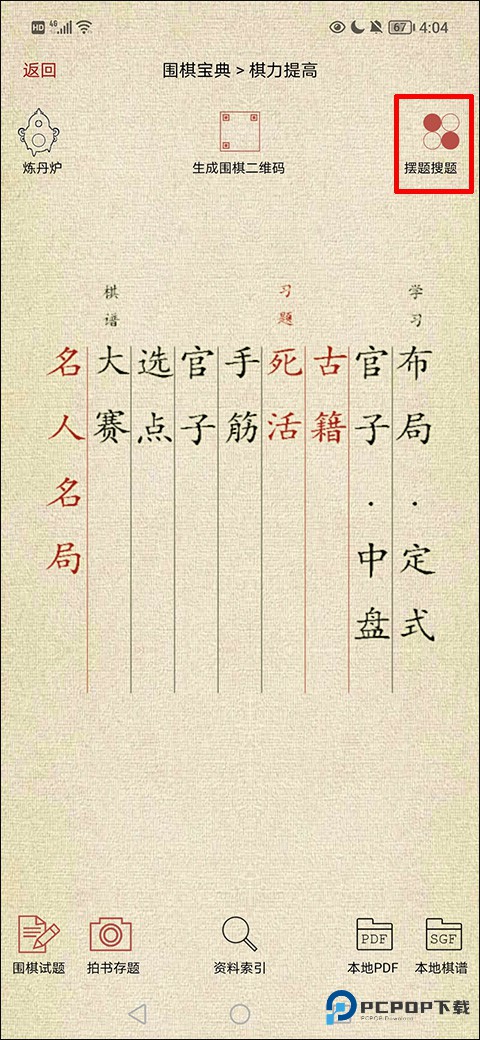 HD 4G 67 4:04
返回 围棋宝典 > 棋力提高
炼丹炉 生成围棋二维码 摆题搜题
学习
布局·定式
官子·中盘
习题
古籍
死活
手筋
官子
选点
棋谱
大赛
名人名局
PDF SGF
围棋试题 拍书存题 资料索引 本地PDF 本地棋谱
PCPOP下载
PCPOP Download